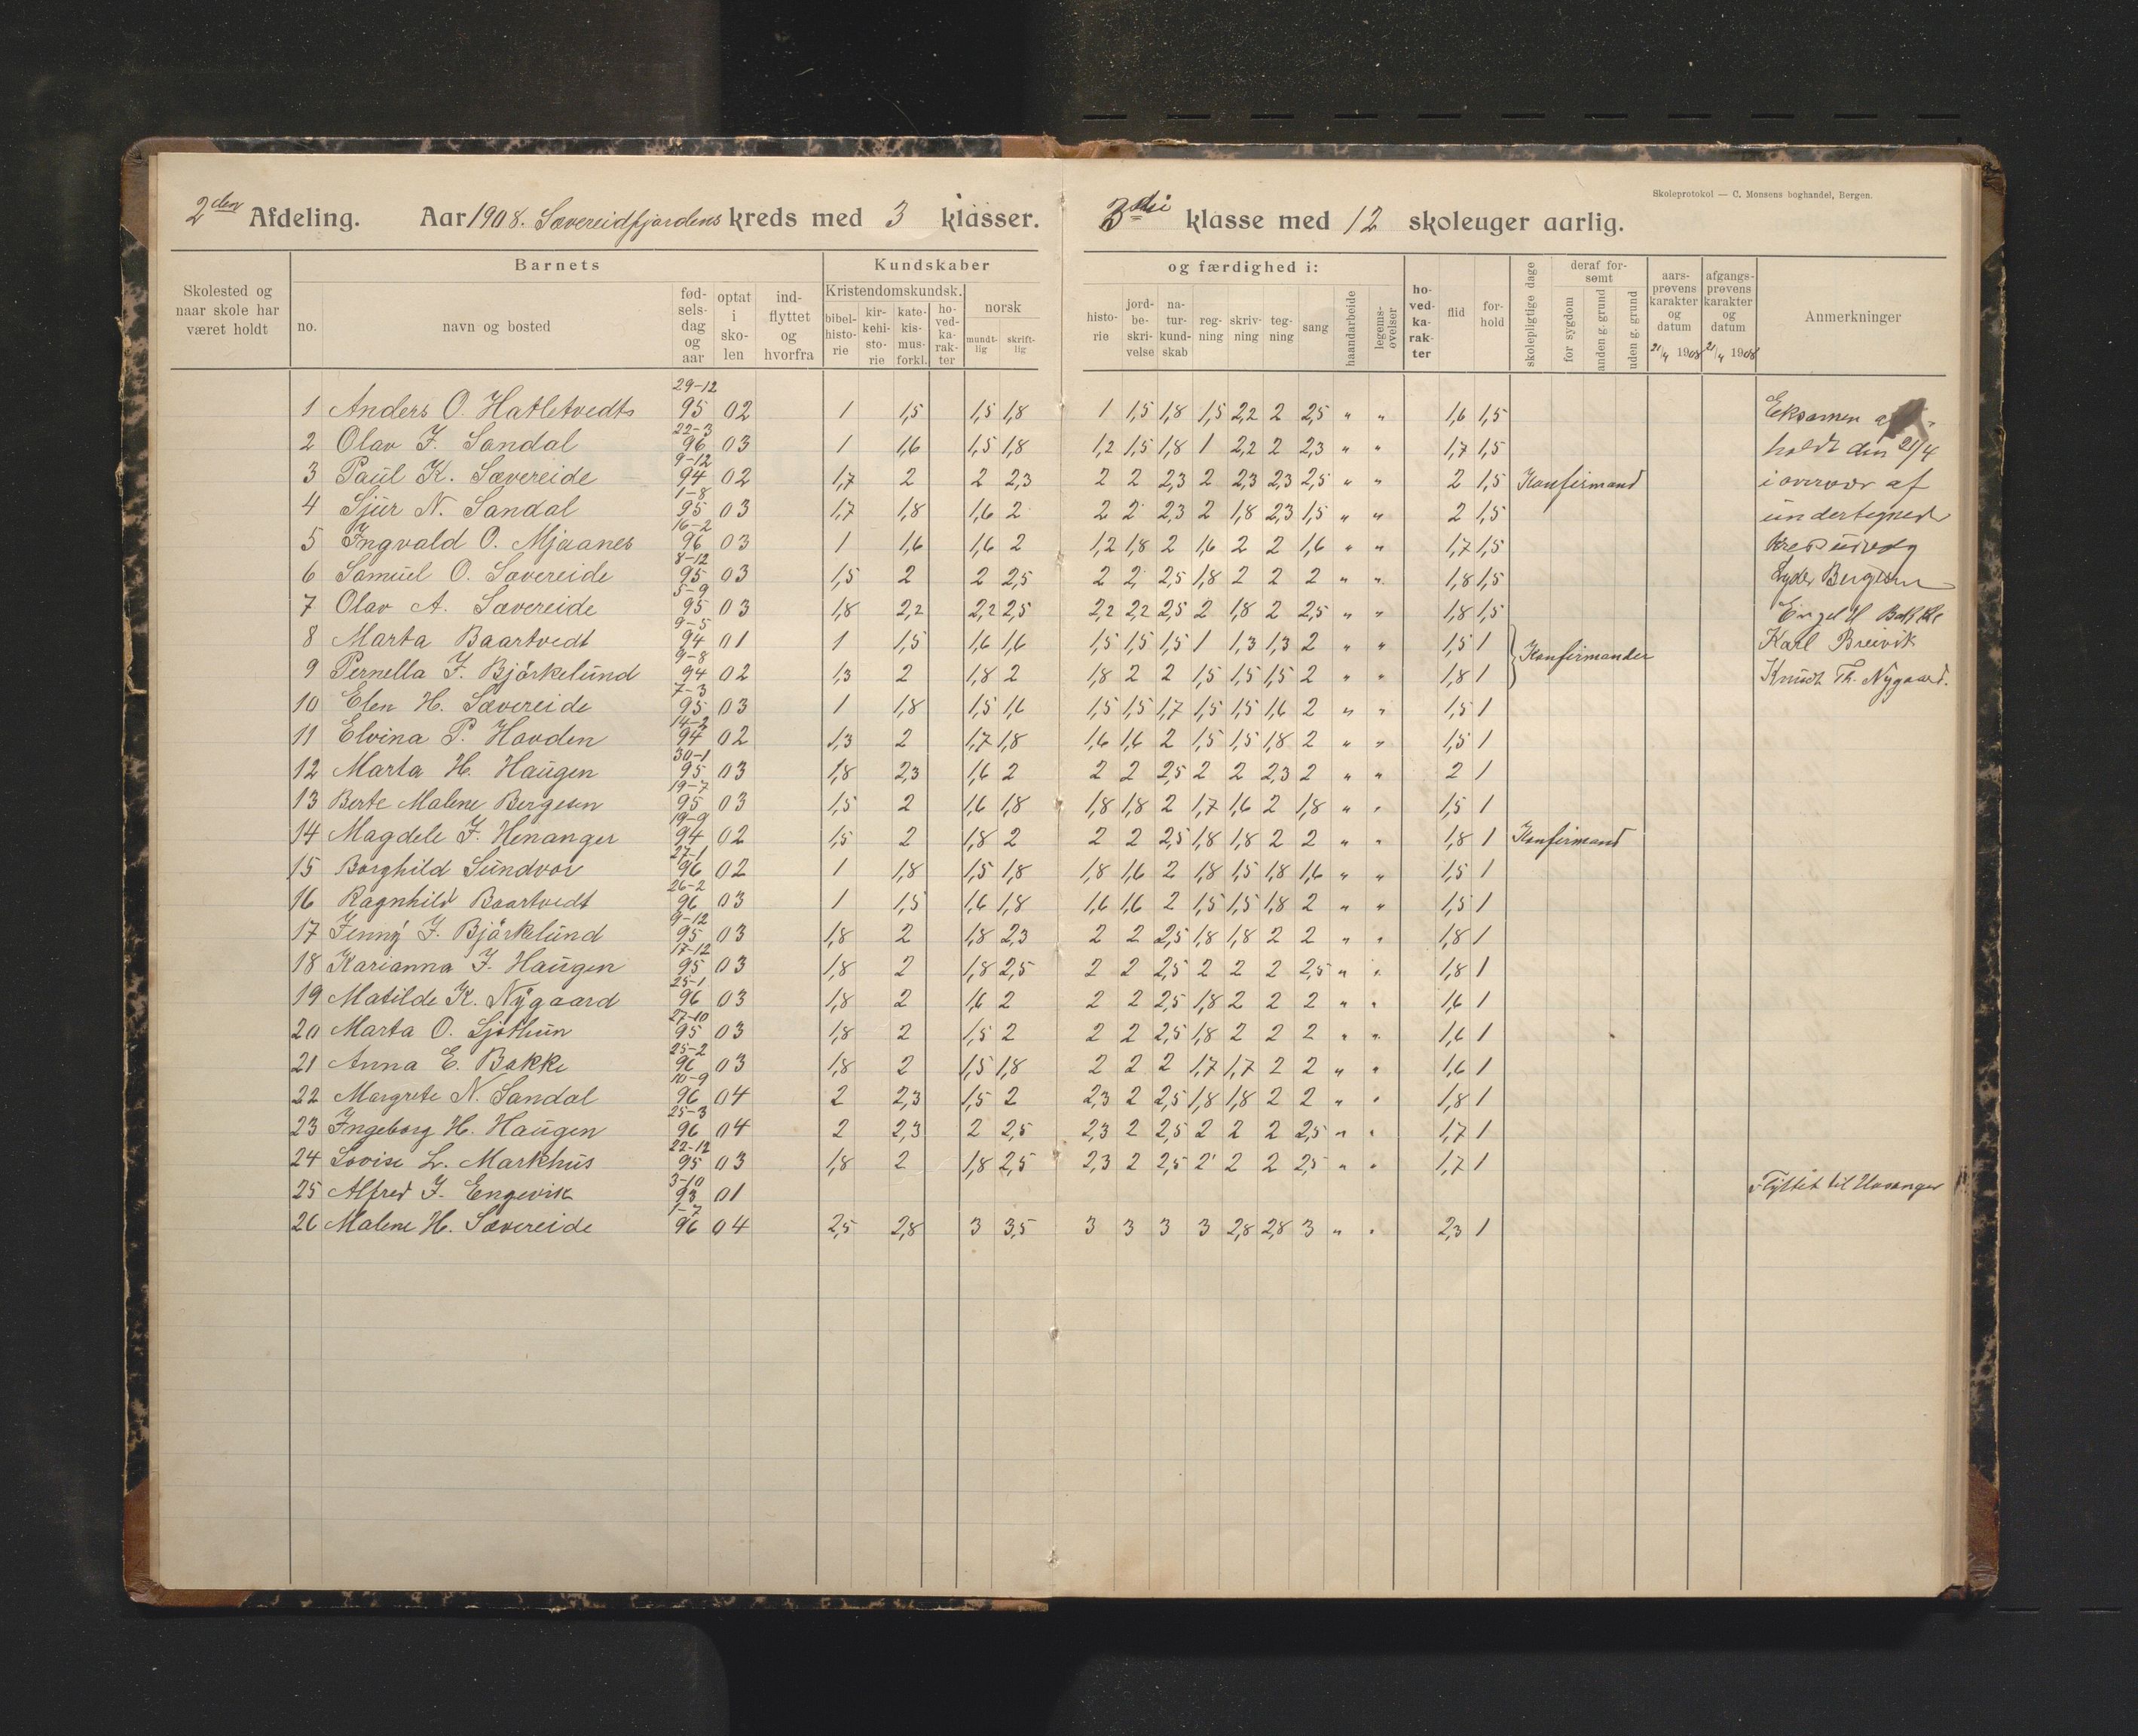 Skoleprotokol — C. Monsens boghandel, Bergen.
2den Afdeling. Aar 1908. Sævereidfjordens kreds med 3 klasser. 3die klasse med 12 skoleuger aarlig.
Skolested og naar skole har været holdt
Barnets
no.
navn og bosted
fødselsdag og aar
optat i skolen
indflyttet og hvorfra
Kundskaber og færdighed i:
Kristendomskundsk.
bibelhistorie
kirkehistorie
katekismus forkl.
hovedkarakter
norsk
mundtlig
skriftlig
historie
jordbeskrivelse
naturkundskab
regning
skrivning
tegning
sang
haandarbeide
legemsøvelser
hovedkarakter
flid
forhold
skolepligtige dage
deraf forsømt
for sygdom
anden g. grund
uden g. grund
aarsprøvens karakter og datum 21/4 1908
afgangsprøvens karakter og datum 21/4 1908
Anmerkninger
1 Anders O. Hatletvedts 29-12 95 02 1 1,5 1,5 1,8 1 1,5 1,8 1,5 2,2 2 2,5 " " 1,6 1,5 Eksamen af-
2 Olav J. Sandal 22-3 96 03 1 1,6 1,5 1,8 1,2 1,5 1,8 1 2,2 2 2,3 " " 1,7 1,5 holdt den 21/4
3 Paul K. Sævereide 9-12 94 02 1,7 2 2 2,3 2 2 2,3 2 2,3 2,3 2,5 " " 2 1,5 Konfirmand i overvær af
4 Sjur N. Sandal 1-8 95 03 1,7 1,8 1,6 2 2 2 2,3 2 1,8 2,3 1,5 " " 2 1,5 undertegnede
5 Ingvald O. Mjaanes 16-2 96 03 1 1,6 1,6 2 1,2 1,8 2 1,6 2 2 1,6 " " 1,7 1,5
6 Samuel O. Sævereide 8-12 95 03 1,5 2 2 2,5 2 2 2,5 1,8 2 2 2 " " 1,8 1,5 Lyder Bergesen
7 Olav A. Sævereide 5-9 95 03 1,8 2,2 2,2 2,5 2,2 2,2 2,5 2 1,8 2 2,5 " " 1,8 1,5 Engel H Bakke
8 Marta Baartvedt 9-5 94 01 1 1,5 1,6 1,6 1,5 1,5 1,5 1 1,3 1,3 2 " " 1,5 1 Karl Breivik
9 Pernella J. Björkelund 9-8 94 02 1,3 2 1,8 2 1,8 2 2 1,5 1,5 1,5 2 " " 1,8 1 Konfirmander Knudt Th. Nygaard.
10 Elen H. Sævereide 7-3 95 03 1 1,8 1,5 1,6 1,5 1,5 1,7 1,5 1,5 1,6 2 " " 1,5 1
11 Elvina P. Hovden 14-2 94 02 1,3 2 1,7 1,8 1,6 1,6 2 1,5 1,5 1,8 2 " " 1,5 1
12 Marta H. Haugen 30-1 95 03 1,8 2,3 1,6 2 2 2 2,5 2 2 2,3 2 " " 2 1
13 Berte Malene Bergesen 19-7 95 03 1,5 2 1,6 1,8 1,8 1,8 2 1,7 1,6 2 1,8 " " 1,5 1
14 Magdele J. Henanger 19-9 94 02 1,5 2 1,8 2 2 2 2,5 1,8 1,8 2 2 " " 1,8 1 Konfirmand
15 Borghild Sundvor 27-1 96 02 1 1,8 1,5 1,8 1,8 1,6 2 1,8 1,5 1,8 1,6 " " 1,5 1
16 Ragnhild Baartvedt 26-2 96 03 1 1,5 1,6 1,8 1,6 1,6 2 1,5 1,5 1,8 2 " " 1,5 1
17 Jenny J. Björkelund 9-12 95 03 1,8 2 1,8 2,3 2 2 2,5 1,8 1,8 2 2 " " 1,8 1
18 Karianna J. Haugen 17-12 95 03 1,8 2 1,8 2,5 2 2 2,5 2 2 2 2,5 " " 1,8 1
19 Matilde K. Nygaard 25-1 96 03 1,8 2 1,6 2 2 2 2,5 1,8 2 2 2 " " 1,6 1
20 Marta O. Sjøthun 27-10 95 03 1,8 2 1,5 2 2 2 2,5 1,8 2 2 2 " " 1,6 1
21 Anna E. Bakke 25-2 96 03 1,8 2 1,5 1,8 2 2 2 1,7 1,7 2 2 " " 1,6 1
22 Margrete N. Sandal 10-9 96 04 2 2,3 1,5 2 2,3 2 2,5 1,8 1,8 2 2 " " 1,8 1
23 Ingeborg H. Haugen 25-3 96 04 2 2,3 2 2,5 2,3 2 2,5 2 2 2 2,5 " " 1,7 1
24 Lovise L. Markhus 22-12 95 03 1,8 2 1,8 2,5 2,3 2 2,5 2 2 2 2,5 " " 1,7 1
25 Alfred J. Engevik 3-10 93 01 Flyttet til Uvanger
26 Malene H. Sævereide 1-7 96 04 2,5 2,8 3 3,5 3 3 3 3 2,8 2,8 3 " " 2,3 1